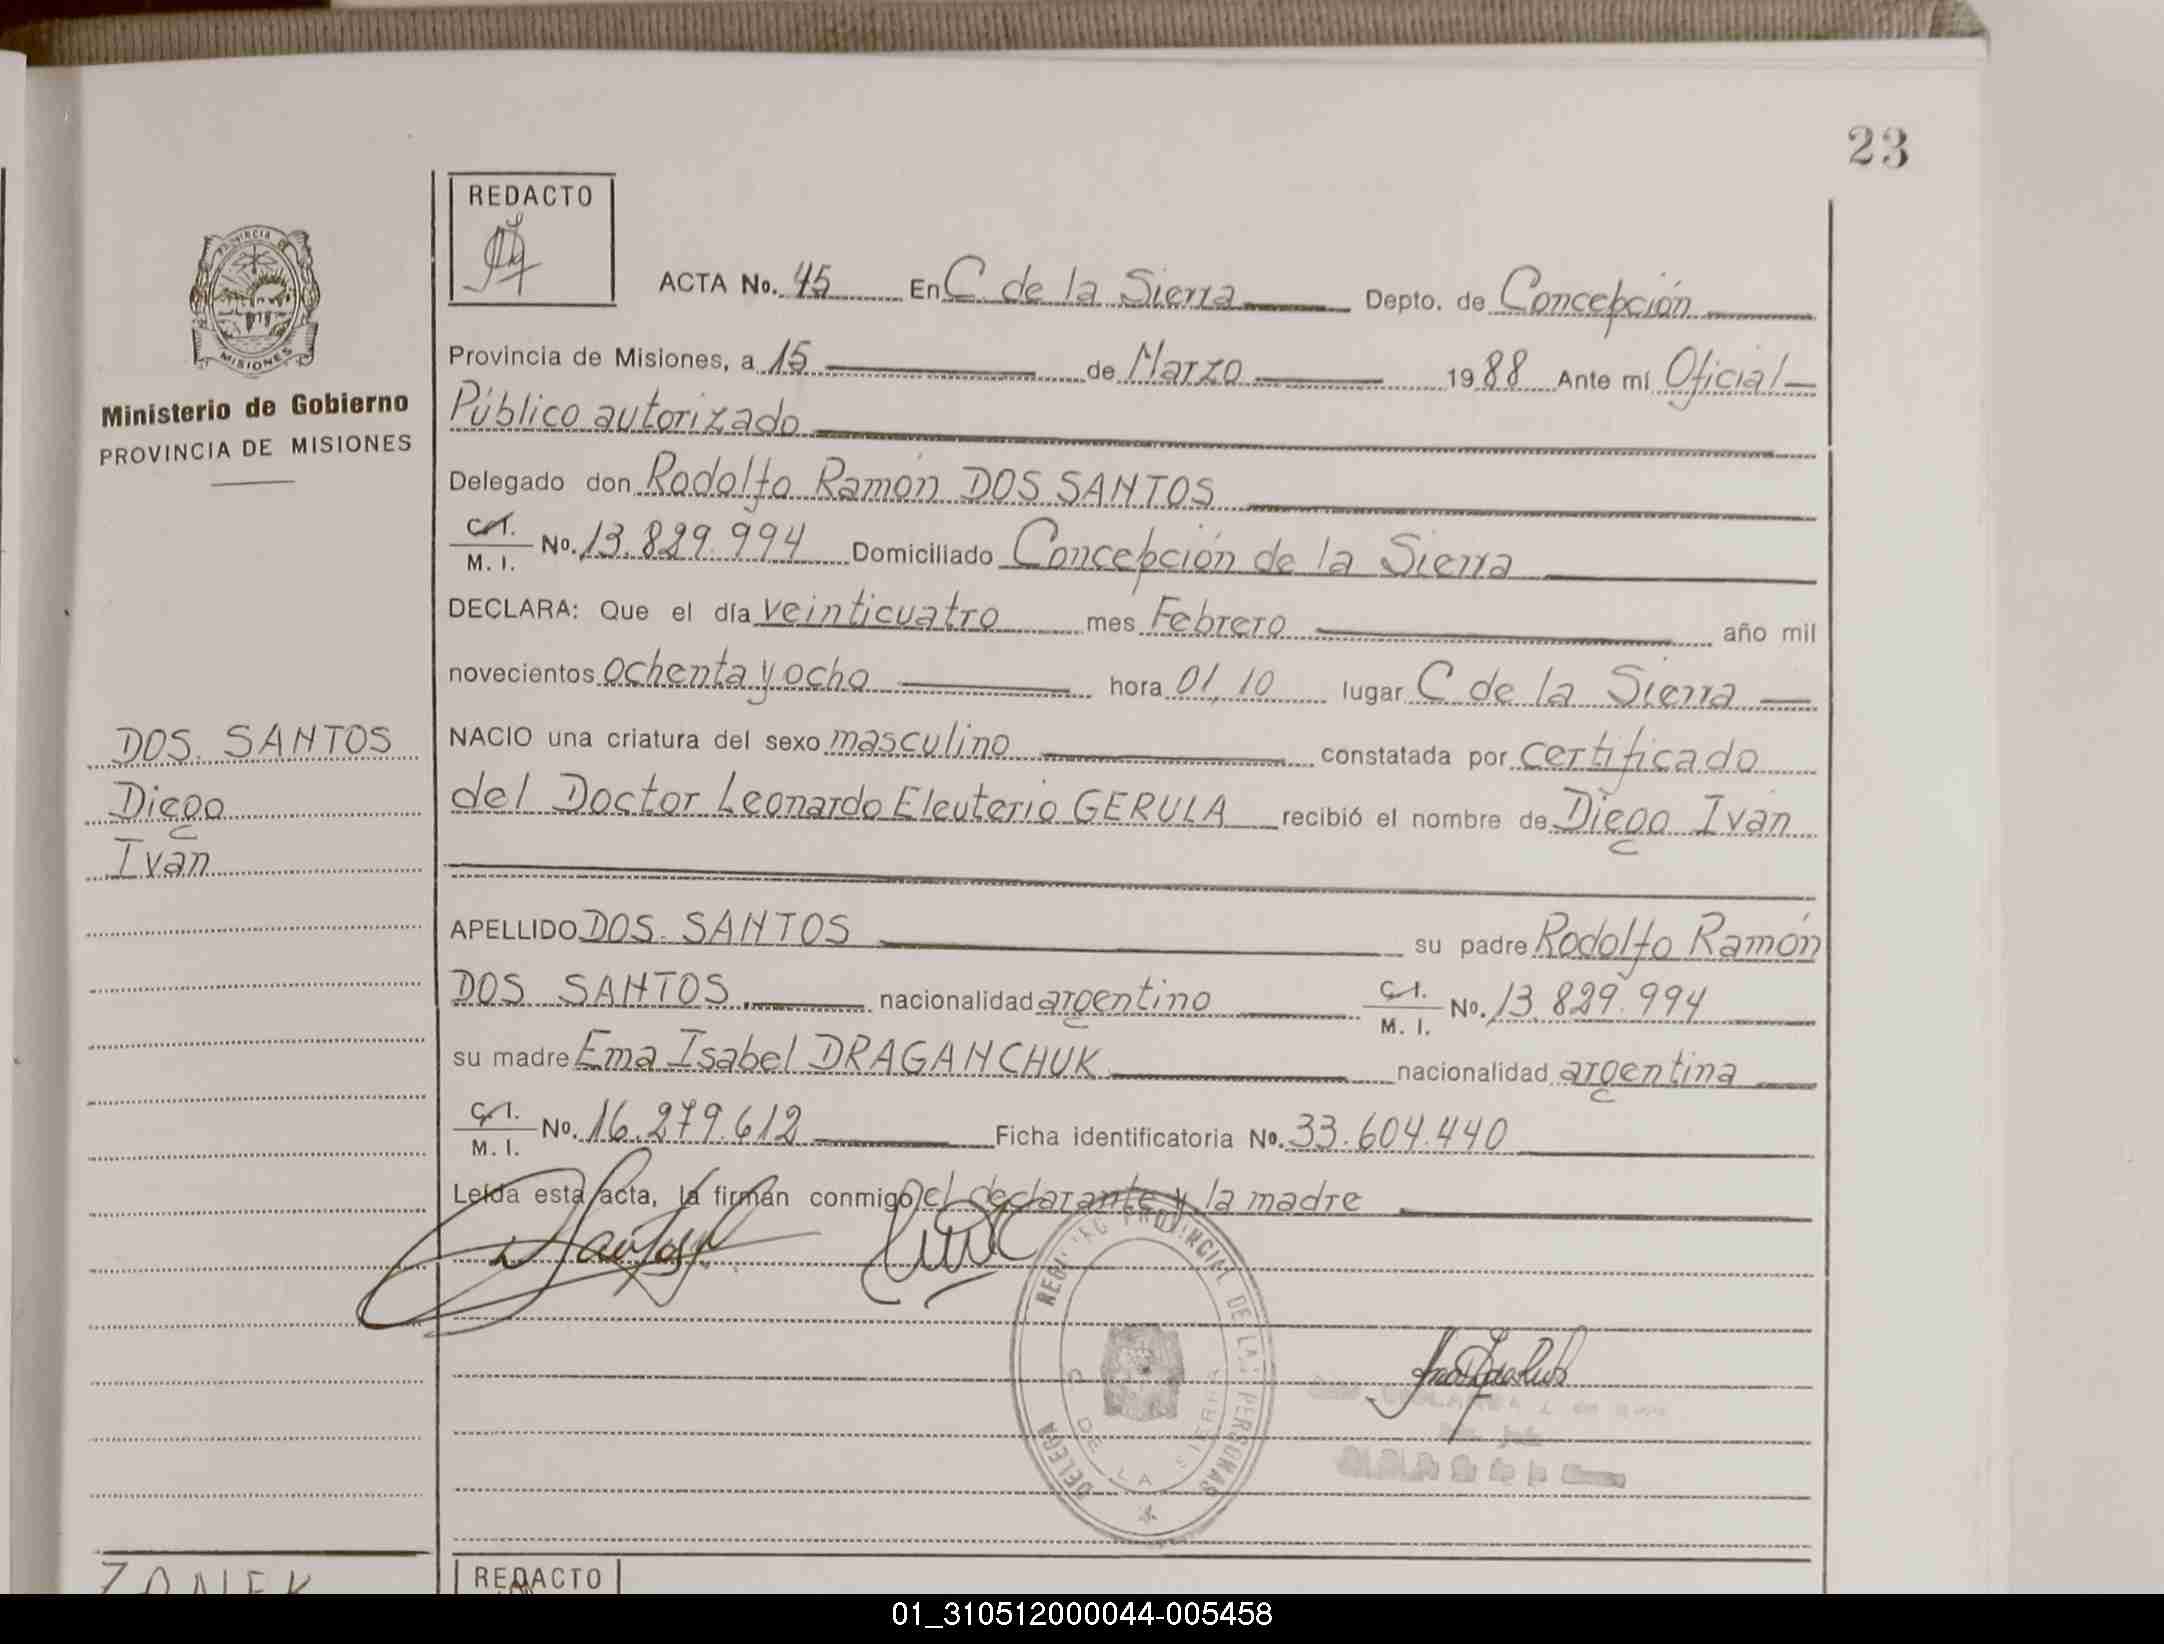 23
REDACTO
PROVINCIA DE
MISIONES
Ministerio de Gobierno
PROVINCIA DE MISIONES
ACTA No. 45 En C de la Sierra Depto. de Concepción
Provincia de Misiones, a 15 de Marzo 1988 Ante mí Oficial
Público autorizado
Delegado don Rodolfo Ramón DOS SANTOS
C.I. / M. I. No. 13.829.994 Domiciliado Concepción de la Sierra
DECLARA: Que el día veinticuatro mes Febrero año mil
novecientos ochenta y ocho hora 01,10 lugar C de la Sierra
DOS. SANTOS
Diego
Iván
NACIO una criatura del sexo masculino constatada por certificado
del Doctor Leonardo Eleuterio GERULA recibió el nombre de Diego Iván
APELLIDO DOS. SANTOS su padre Rodolfo Ramón
DOS SANTOS nacionalidad argentino C.I. / M. I. No. 13.829.994
su madre Ema Isabel DRAGANCHUK nacionalidad argentina
C.I. / M. I. No. 16.279.612 Ficha identificatoria No. 33.604.440
Leída esta acta, la firman conmigo el declarante y la madre
REGISTRO PROVINCIAL DE LAS PERSONAS
DELEGA
DE LA SIERRA
ZONEK
REDACTO
01_310512000044-005458